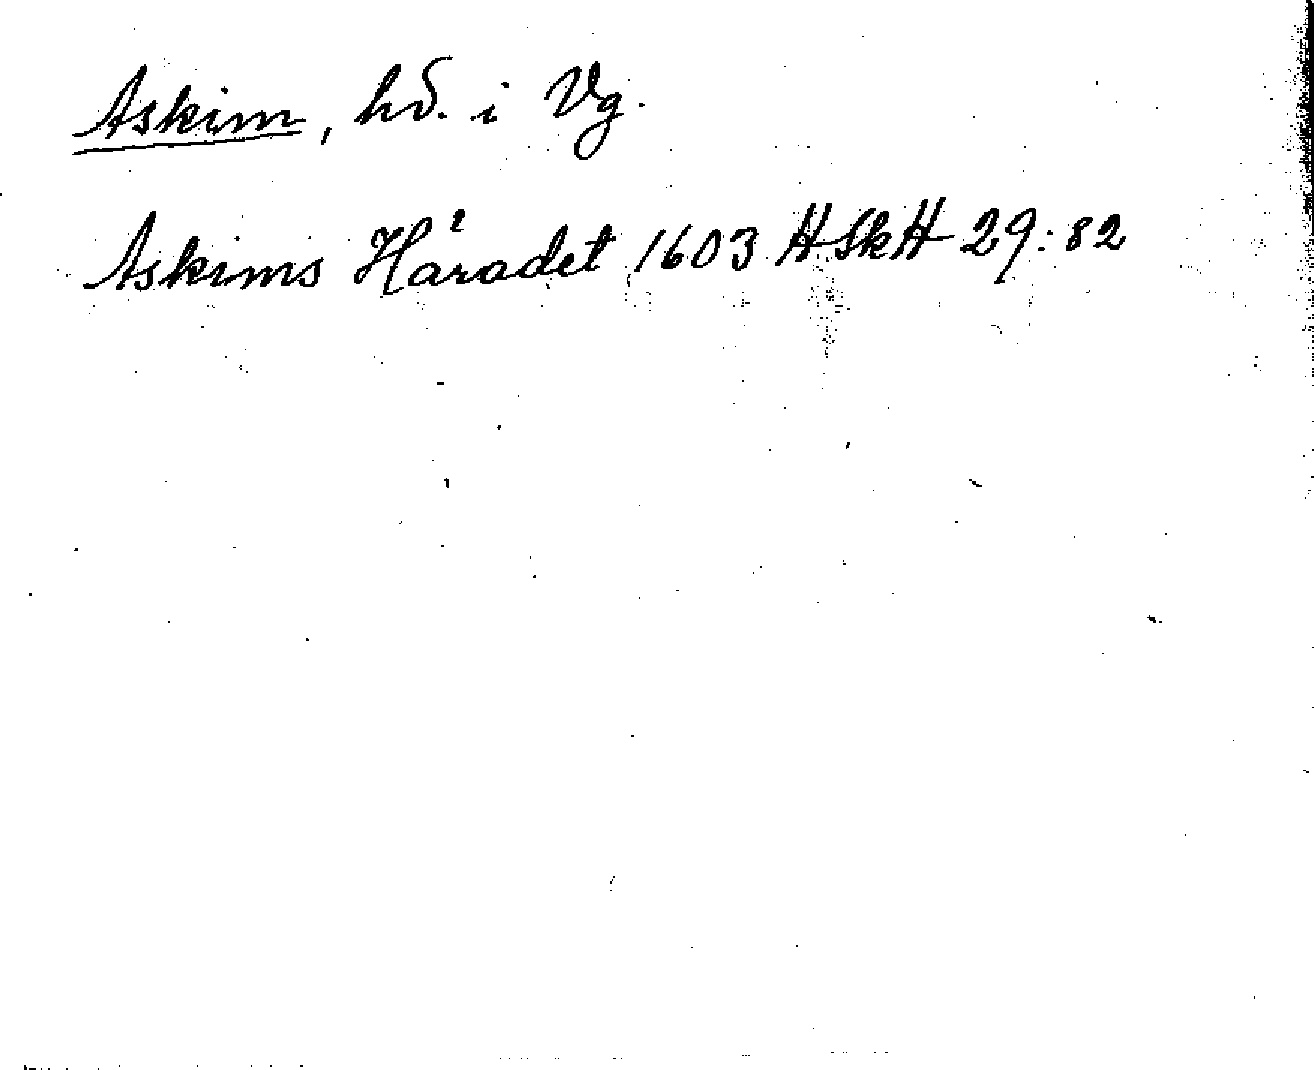 Askim, hd. i Vg.
Askims Häradet 1603 HSkH 29:82